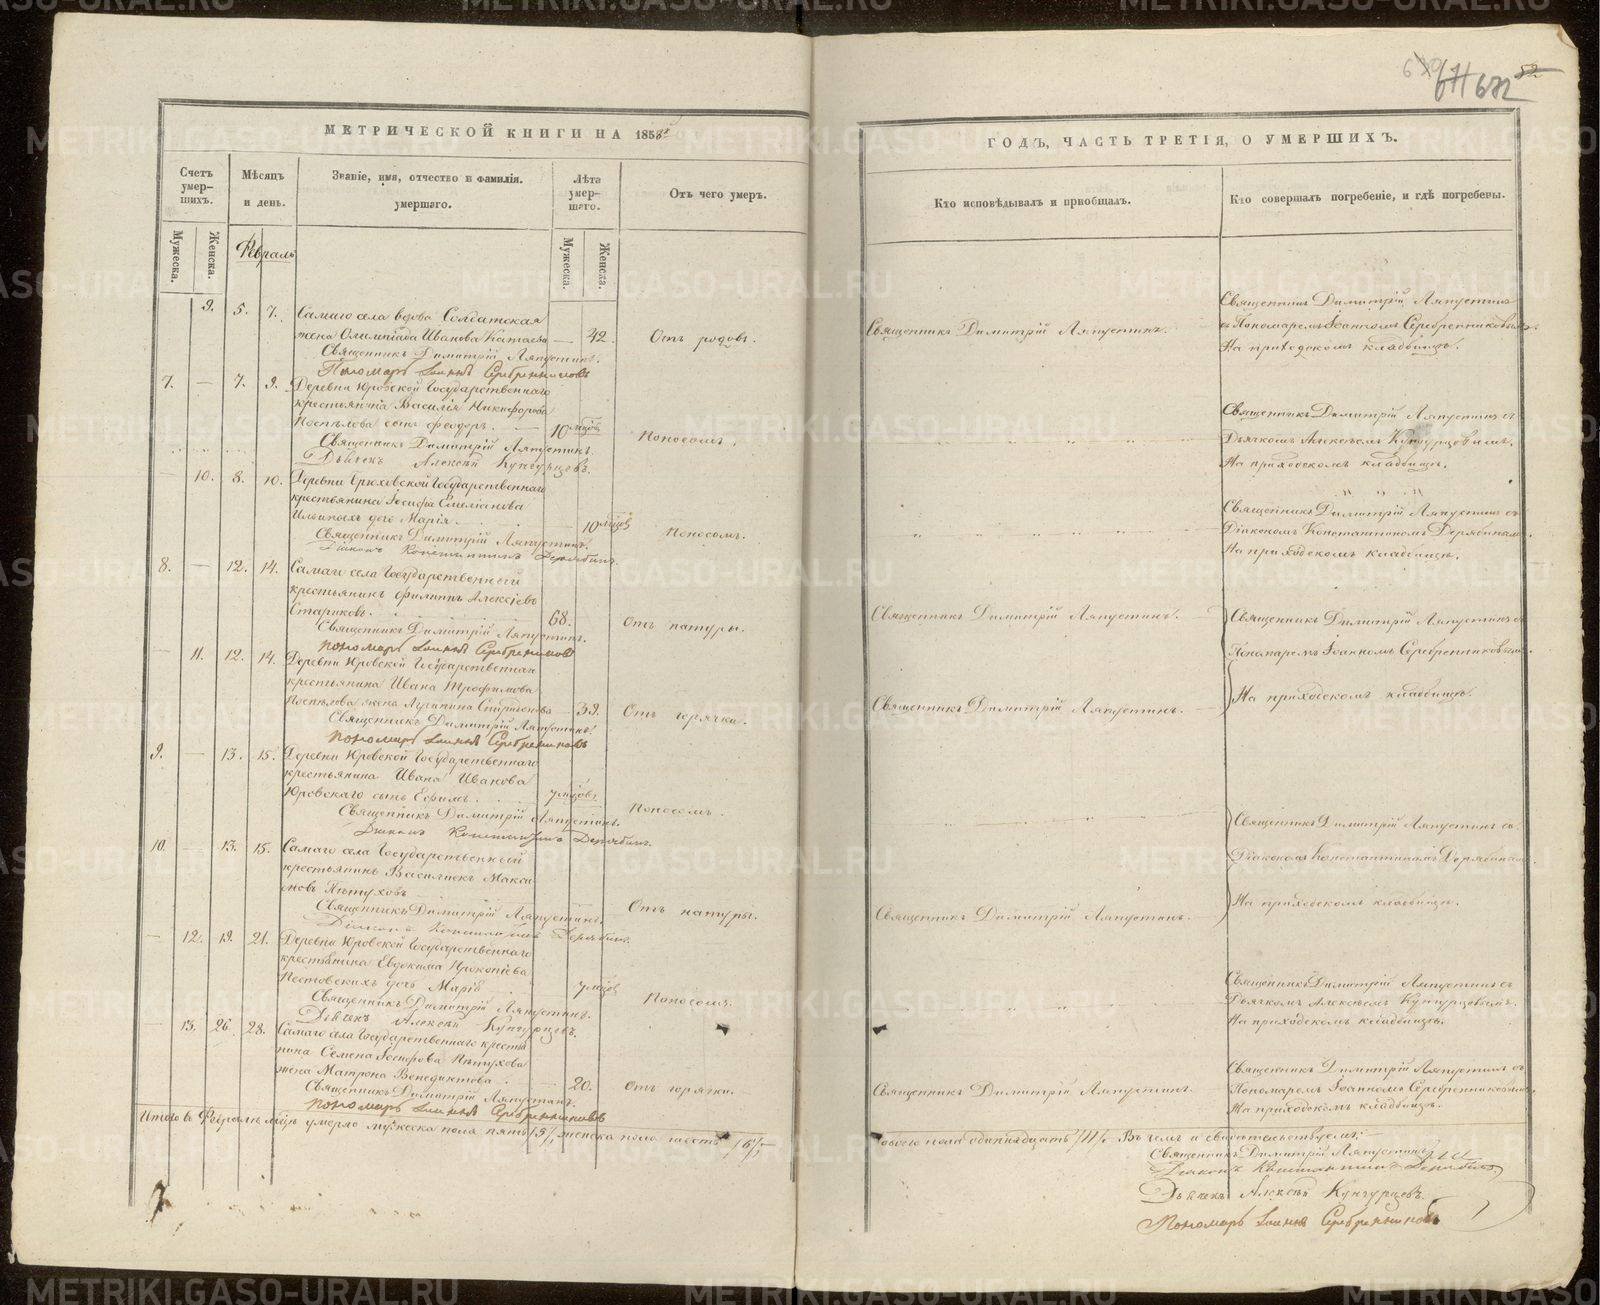 52
672
МЕТРИЧЕСКОЙ КНИГИ НА 185
ГОДЪ, ЧАСТЬ ТРЕТІЯ, О УМЕРШИХЪ.
Счетъ умер- шихъ.
Мужеска.
Женска.
Мѣсяцъ и день.
Февраль
Званіе, имя, отчество и фамилія. умершаго.
Лѣта умер- шаго.
Мужеска.
Женска.
Отъ чего умеръ.
Кто исповѣдывалъ и пріобщалъ.
Кто совершалъ погребеніе, и гдѣ погребены.
9. 5. 7. Самаго села вдова Солдатская
жена Олимпіада Иванова Катаева — 42. Отъ родовъ.
Священникъ Димитрій Ляпустинъ.
Пономарь Іоаннъ Серебренниковъ
Священникъ Димитрій Ляпустинъ.
Священникъ Димитрій Ляпустинъ
съ Пономаремъ Іоанномъ Серебренниковымъ.
На приходскомъ кладбищѣ.
7. — 7. 9. Деревни Юровской Государственнаго
крестьянина Василія Никифорова
Поспѣлова сынъ Феодоръ. — 10 мцовъ Поносомъ.
Священникъ Димитрій Ляпустинъ.
Дьячекъ Алексѣй Кунгурцовъ.
Священникъ Димитрій Ляпустинъ съ
Дьячкомъ Алексѣемъ Кунгурцовымъ.
На приходскомъ кладбищѣ.
— 10. 8. 10. Деревни Брюховской Государственнаго
крестьянина Іосифа Емеліанова
Ильиныхъ дочь Марія. — 10 мцовъ Поносомъ.
Священникъ Димитрій Ляпустинъ.
Діаконъ Константинъ Дерябинъ.
Священникъ Димитрій Ляпустинъ съ
Діакономъ Константиномъ Дерябинымъ.
На приходскомъ кладбищѣ.
8. — 12. 14. Самаго села Государственный
крестьянинъ Филиппъ Алексѣевъ
Стариковъ. 68. Отъ натуры.
Священникъ Димитрій Ляпустинъ.
Пономарь Іоаннъ Серебренниковъ
Священникъ Димитрій Ляпустинъ.
Священникъ Димитрій Ляпустинъ съ
Пономаремъ Іоанномъ Серебренниковымъ.
На приходскомъ кладбищѣ.
— 11. 12. 14. Деревни Юровской Государственнаго
крестьянина Ивана Трофимова
Поспѣлова жена Агрипина Спиридонова — 39. Отъ горячки.
Священникъ Димитрій Ляпустинъ.
Пономарь Іоаннъ Серебренниковъ
Священникъ Димитрій Ляпустинъ.
9. — 13. 15. Деревни Юровской Государственнаго
крестьянина Ивана Иванова
Юровскаго сынъ Ефимъ. 7 мцовъ. Поносомъ.
Священникъ Димитрій Ляпустинъ.
Діаконъ Константинъ Дерябинъ.
Священникъ Димитрій Ляпустинъ съ
Діакономъ Константиномъ Дерябинымъ
На приходскомъ кладбищѣ.
10. — 13. 15. Самаго села Государственный
крестьянинъ Василискъ Макси
мовъ Пѣтуховъ Отъ натуры.
Священникъ Димитрій Ляпустинъ.
Діаконъ Константинъ Дерябинъ.
Священникъ Димитрій Ляпустинъ.
— 12. 19. 21. Деревни Юровской Государственнаго
крестьянина Евдокима Прокопіева
Пестовскихъ дочь Марія — 7 мцовъ Поносомъ.
Священникъ Димитрій Ляпустинъ.
Дьячекъ Алексѣй Кунгурцовъ.
Священникъ Димитрій Ляпустинъ съ
Дьячкомъ Алексѣемъ Кунгурцовымъ.
На приходскомъ кладбищѣ.
— 13. 26. 28. Самаго села Государственнаго крестья
нина Семена Іосифова Пѣтухова
жена Матрона Венедиктова. 20. Отъ горячки.
Священникъ Димитрій Ляпустинъ.
Пономарь Іоаннъ Серебренниковъ
Священникъ Димитрій Ляпустинъ.
Священникъ Димитрій Ляпустинъ съ
Пономаремъ Іоанномъ Серебренниковымъ.
На приходскомъ кладбищѣ.
Итого въ Февралѣ мцѣ умерло мужеска пола пять /5/, женска пола шесть /6/,
обоего пола одинадцать /11/. Въ чемъ и свидѣтельствуемъ:
Священникъ Димитрій Ляпустинъ
Діаконъ Константинъ Дерябинъ
Дьячекъ Алексѣй Кунгурцовъ.
Пономарь Іоаннъ Серебренниковъ
METRIKI.GASO-URAL.RU